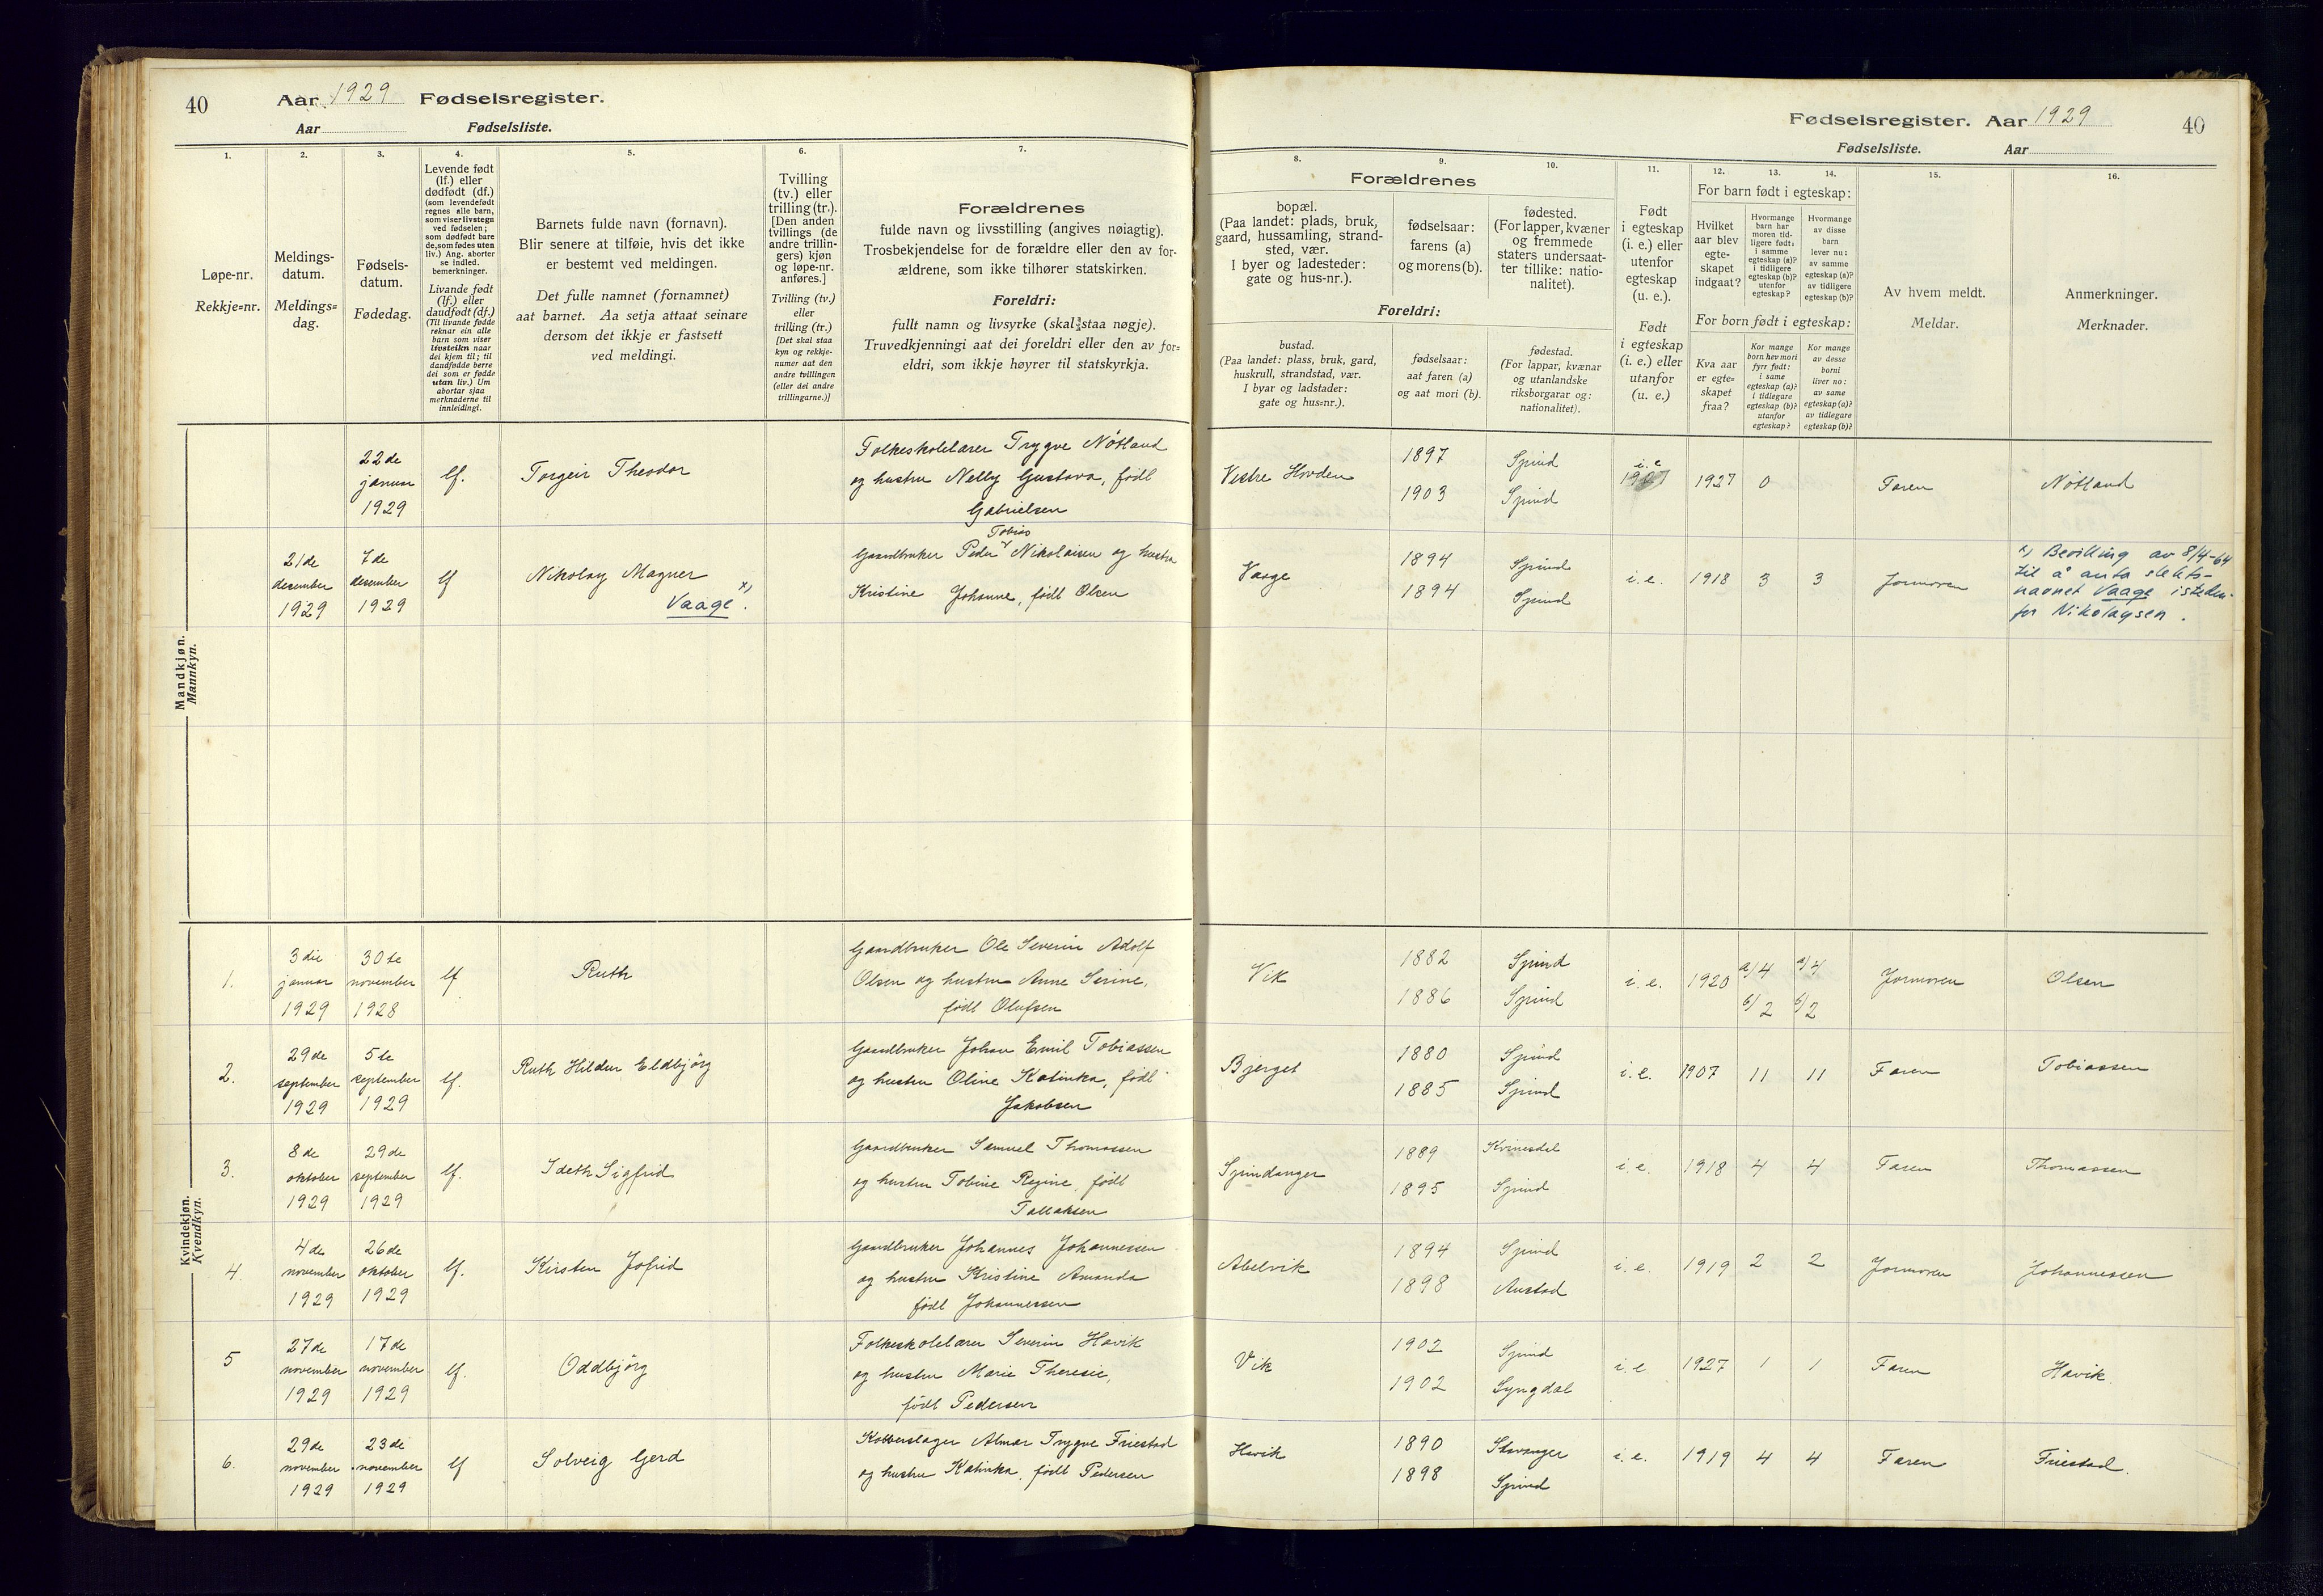 40
Aar 1929 Fødselsregister.
Aar Fødselsliste.
1.
Løpe-nr.
Rekkje=nr.
2.
Meldings-
datum.
Meldings=
dag.
3.
Fødsels-
datum.
Fødedag.
4.
Levende født
(lf.) eller
dødfødt (df.)
(som levendefødt
regnes alle barn,
som viser livstegn
ved fødselen;
som dødfødt bare
de, som fødes uten
liv.) Ang. aborter
se indled.
bemerkninger.
Livande født
(lf.) eller
daudfødt (df.)
(Til livande fødde
reknar ein alle
barn som viser
livsteikn naar
dei kjem til; til
daudfødde berre
dei som er fødde
utan liv.) Um
abortar sjaa
merknaderne til
innleidingi.
5.
Barnets fulde navn (fornavn).
Blir senere at tilføie, hvis det ikke
er bestemt ved meldingen.
Det fulle namnet (fornamnet)
aat barnet. Aa setja attaat seinare
dersom det ikkje er fastsett
ved meldingi.
6.
Tvilling
(tv.) eller
trilling (tr.).
[Den anden
tvillings (de
andre trillin-
gers) kjøn
og løpe-nr.
anføres.]
Tvilling (tv.)
eller
trilling (tr.)
[Det skal staa
kyn og rekkje-
numer aat den
andre tvillingen
(eller dei andre
trillingarne.)]
7.
Forældrenes
fulde navn og livsstilling (angives nøiagtig).
Trosbekjendelse for de forældre eller den av for-
ældrene, som ikke tilhører statskirken.
Foreldri:
fullt namn og livsyrke (skal staa nøgje).
Truvedkjenningi aat dei foreldri eller den av for=
eldri, som ikkje høyrer til statskyrkja.
Mandkjøn.
Mannkyn.
22de
januar
1929
lf.
Torgeir Theodor
Folkeskolelærer Trygve Nötland
og hustru Nelly Gustava, født
Gabrielsen
21de
desember
1929
7de
desember
1929
lf
Nikolay Magner
Vaage x).
Tobias
Gaardbruker Peder Nikolaisen og hustru
Kristine Johanne, født Olsen
Kvindekjøn.
Kvendkyn.
1.
3die
januar
1929
30te
november
1928
lf
Ruth
Gaardbruker Ole Severin Adolf
Olsen og hustru Anne Serine,
født Olufsen
2.
29de
september
1929
5te
september
1929
lf.
Ruth Hildur Eldbjörg
Gaardbruker Johan Emil Tobiassen
og hustru Oline Katinka, født
Jakobsen
3.
8de
oktober
1929
29de
september
1929
lf.
Ideth Sigfrid
Gaardbruker Samuel Thomassen
og hustru Tobine Regine, født
Tallaksen
4.
4de
november
1929
26de
oktober
1929
lf.
Kirsten Jofrid
Gardbruker Johannes Johannessen
og hustru Kristine Amanda
født Johannessen
5
27de
november
1929
17de
november
1929
lf.
Oddbjörg
Folkeskolelærer Severin Havik
og hustru Marie Theresie,
født Pedersen
6.
29de
november
1929
23de
november
1929
lf
Solveig Gerd
Kobberslager Almar Trygve Friestad
og hustru Katinka, født Pedersen
Fødselsregister. Aar 1929
40
Fødselsliste. Aar
8.
Forældrenes
bopæl.
(Paa landet: plads, bruk,
gaard, hussamling, strand-
sted, vær.
I byer og ladesteder:
gate og hus-nr.).
Foreldri:
bustad.
(Paa landet: plass, bruk, gard,
huskrull, strandstad, vær.
I byar og ladstader:
gate og hus=nr.).
9.
fødselsaar:
farens (a)
og morens (b).
fødselsaar:
aat faren (a)
og aat mori (b).
10.
fødested.
(For lapper, kvæner
og fremmede
staters undersaat-
ter tillike: natio-
nalitet).
fødestad.
(For lappar, kvænar
og utanlandske
riksborgarar og:
nationalitet).
11.
Født
i egteskap
(i. e.) eller
utenfor
egteskap
(u. e.).
Født
i egteskap
(i. e.) eller
utanfor
(u. e.)
12.
13.
14.
For barn født i egteskap:
Hvilket
aar blev
egte-
skapet
indgaat?
Hvormange
barn har
moren tid-
ligere født:
i samme
egteskap (a)?
i tidligere
egteskap (b)?
utenfor
egteskap?
Hvormange
av disse
barn
lever nu:
av samme
egteskap (a)?
av tidligere
egteskap (b)?
For born født i egteskap:
Kva aar
er egte=
skapet
fraa?
Kor mange
born hev mori
fyrr født:
i same
egteskap (a)?
i tidlegare
egteskap (b)?
utanfor
egteskap?
Kor mange
av desse
borni
liver no:
av same
egteskap (a)?
av tidlegare
egteskap (b)?
15.
Av hvem meldt.
Meldar.
16.
Anmerkninger.
Merknader.
Vestre Hovden
1897
1903
Spind
Spind
i. e
1927
0
Faren
Nötland
Vaage
1894
1894
Spind
Spind
i. e.
1918
3
3
Jormoren
x) Bevilling av 8/4-64
til å anta slekts-
navnet Vaage isteden-
for Nikolaysen.
Vik
1882
1886
Spind
Spind
i. e.
1920
a/4
b/2
a/4
b/2
Jormoren
Olsen
Bjerget
1880
1885
Spind
Spind
i. e.
1907
11
11
Faren
Tobiassen
Spindanger
1889
1895
Kvinesdal
Spind
i. e.
1918
4
4
Faren
Thomassen
Abelvik
1894
1898
Spind
Austad
i. e.
1919
2
2
Jormoren
Johannessen
Vik
1902
1902
Spind
Lyngdal
i. e
1927
1
1
Faren
Havik.
Havik
1890
1898
Stavanger
Spind
i. e.
1919
4
4
Faren
Friestad.